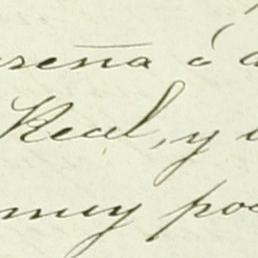 reseña ó
Real, y
muy po